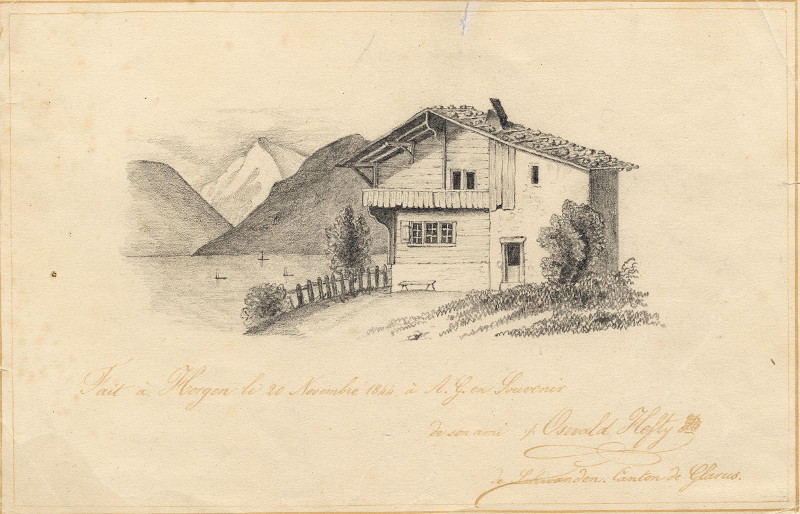 Fait à Horgen le 20 Novembre 1844 à A. G. en Souvenir
de son ami Oswald Hefty
de Schwanden. Canton de Glarus.